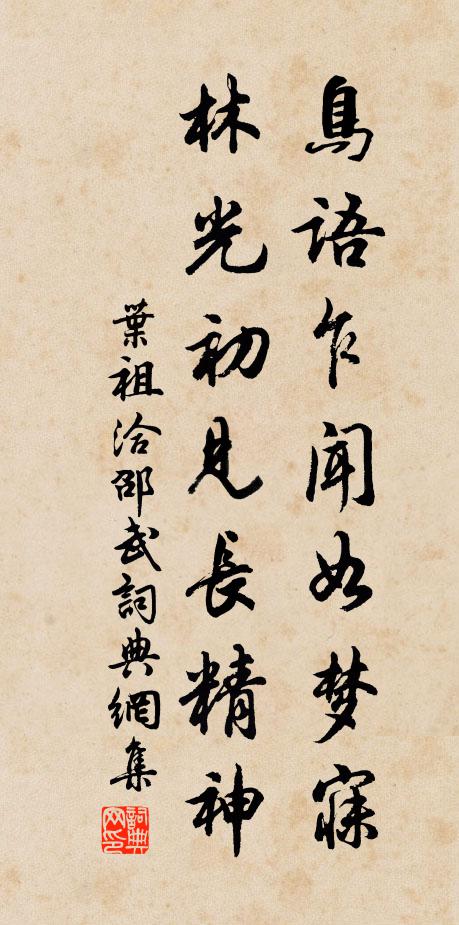 鳥語乍聞如梦寐
林光初見長精神
葉祖洽邵武詞典網集
詞典网印